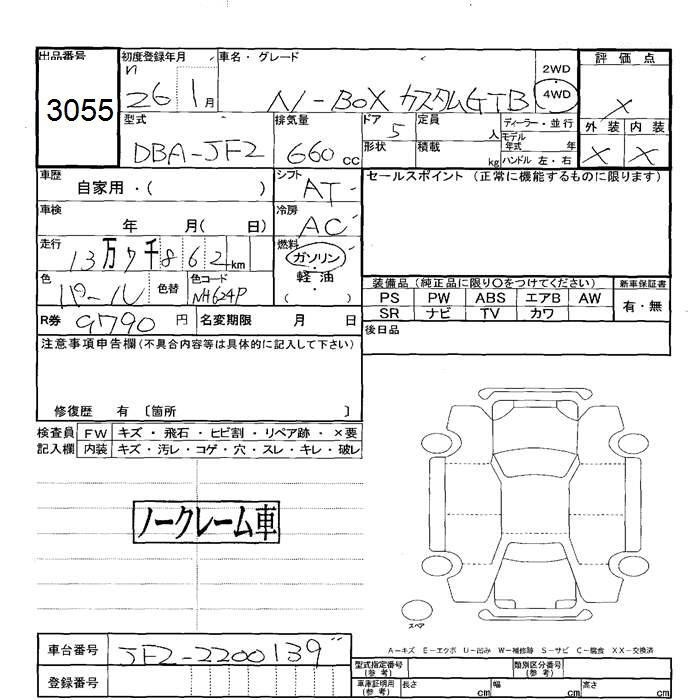 出品番号 初度登録年月 車名・グレード 評価点
3055 H 26 1月 N-BOX カスタムGTB 2WD 4WD X
型式 排気量 ドア 定員 ディーラー・並行 外装 内装
DBA-JF2 660 cc 5 人 モデル年式 年 X X
形状 積載 kg ハンドル 左・右
車歴 シフト セールスポイント (正常に機能するものに限ります)
自家用・( ) AT
車検 冷房
年 月( 日) AC
走行 燃料
13万7千862km ガソリン
軽油
色 色替 色コード ・( ) 装備品 (純正品に限り〇をつけてください) 新車保証書
パール NH624P PS PW ABS エアB AW 有・無
SR ナビ TV カワ
R券 9790 円 名変期限 月 日
後日品
注意事項申告欄(不具合内容等は具体的に記入して下さい)
修復歴 有 〔箇所 〕
検査員 FW キズ・飛石・ヒビ割・リペア跡・×要
記入欄 内装 キズ・汚レ・コゲ・穴・スレ・キレ・破レ
ノークレーム車
スペア
A-キズ E-エクボ U-凹み W-補修跡 S-サビ C-腐食 XX-交換済
車台番号 JF2-2200139
型式指定番号(参考) 類別区分番号(参考)
登録番号
車庫証明用(参考) 長さ cm 幅 cm 高さ cm